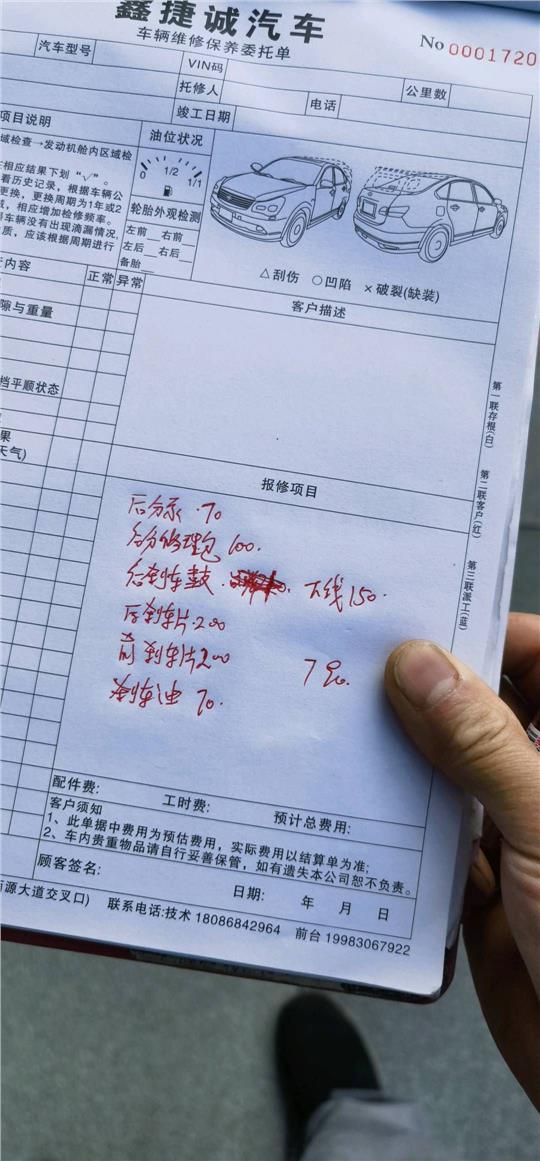 鑫捷诚汽车
车辆维修保养委托单
No 0001720
汽车型号
VIN码
托修人
公里数
竣工日期
电话
项目说明
油位状况
域检查→发动机舱内区域检
相应结果下划“√”。
看历史记录，根据车辆公
更换，更换周期为1年或2
，相应增加检修频率。
车辆没有出现滴漏情况，
质，应该根据周期进行
0 1/2 1/1
轮胎外观检测
左前 右前
左后 右后
备胎
△刮伤 ○凹陷 ×破裂(缺装)
内容
正常 异常
客户描述
隙与重量
档平顺状态
果
天气)
第一联存根(白)
第二联客户(红)
第三联派工(蓝)
报修项目
后分泵 70
后分修理包 100.
后刹车鼓 下线 150.
后刹车片 200
前刹车片 200
刹车油 70.
790.
配件费:
工时费:
预计总费用:
客户须知
1、此单据中费用为预估费用，实际费用以结算单为准;
2、车内贵重物品请自行妥善保管，如有遗失本公司恕不负责。
顾客签名:
日期: 年 月 日
源大道交叉口) 联系电话:技术 18086842964 前台 19983067922